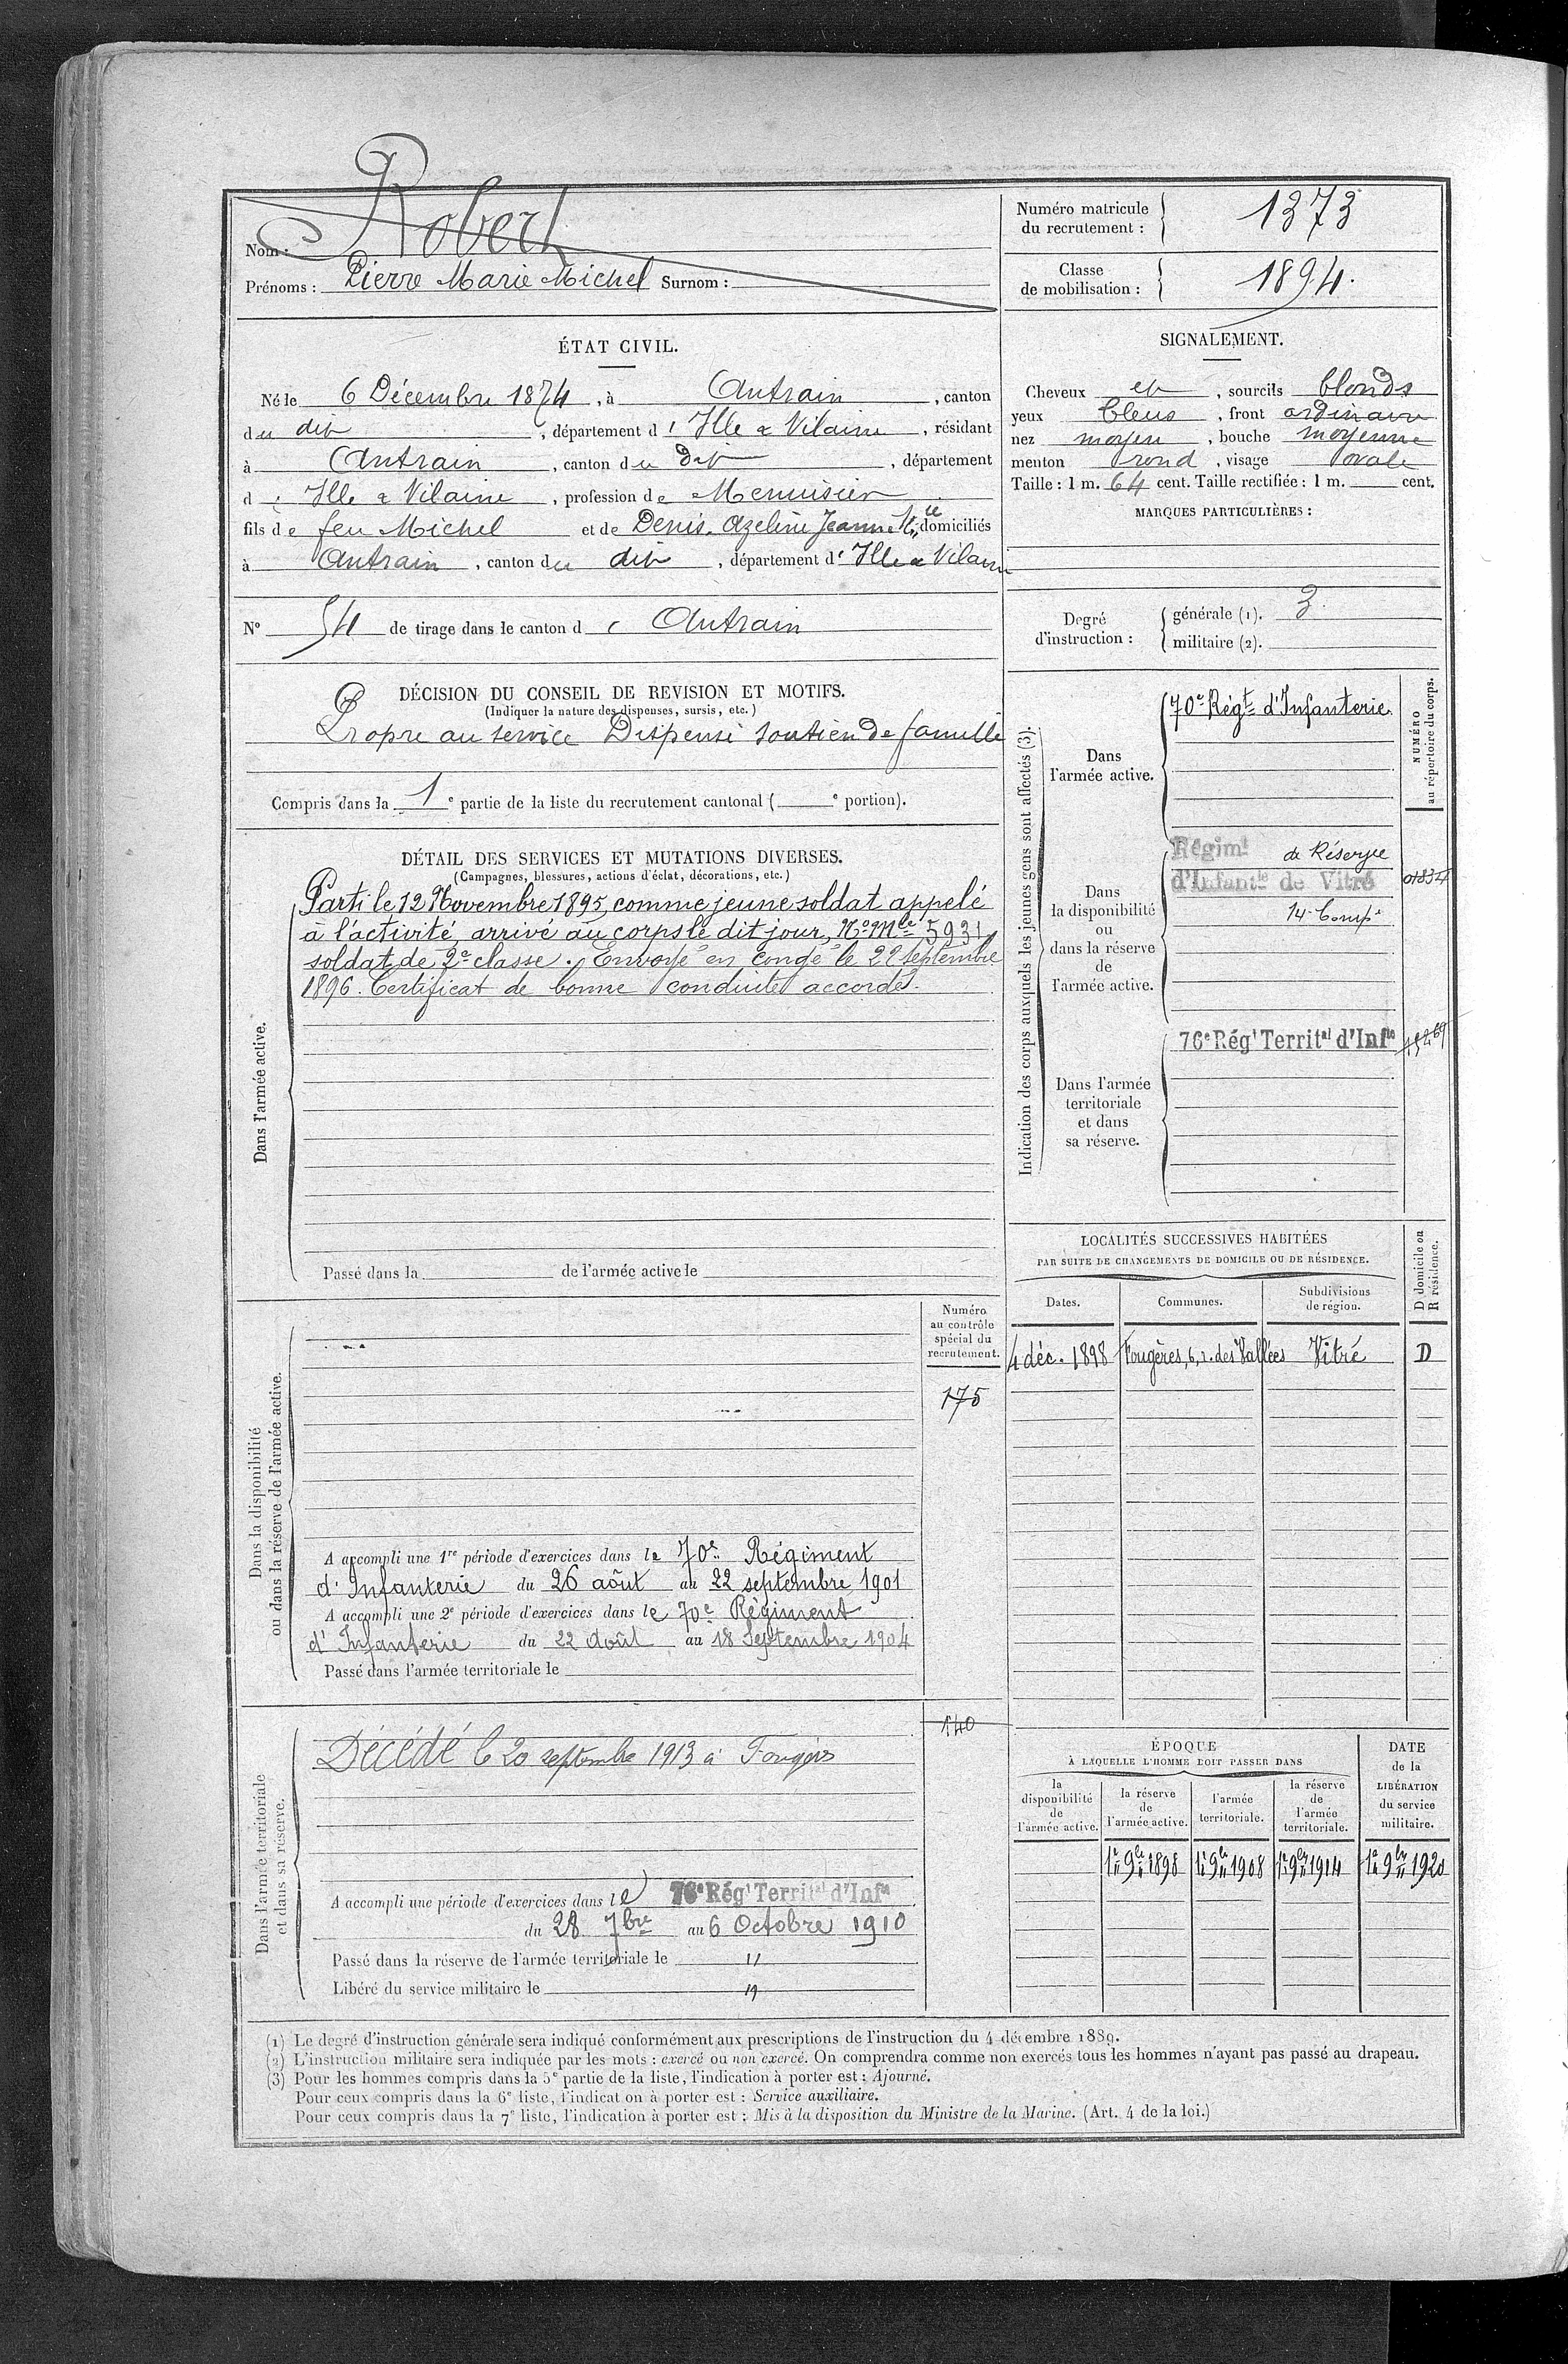 Nom : Robert
Prénoms : Pierre Marie Michel Surnom :
Numéro matricule du recrutement : 1373
Classe de mobilisation : 1894.
ÉTAT CIVIL.
Né le 6 Décembre 1874, à Antrain, canton
du dit, département d'Ille & Vilaine, résidant
à Antrain, canton du dit, département
d' Ille & Vilaine, profession de Menuisier
fils de feu Michel et de Denis. Azeline Jeanne Mie domiciliés
à Antrain, canton du dit, département d'Ille & Vilaine
N° 54 de tirage dans le canton d' Antrain
DÉCISION DU CONSEIL DE REVISION ET MOTIFS.
(Indiquer la nature des dispenses, sursis, etc.)
Propre au service Dispensé soutien de famille
Compris dans la 1e partie de la liste du recrutement cantonal ( e portion).
DÉTAIL DES SERVICES ET MUTATIONS DIVERSES.
(Campagnes, blessures, actions d'éclat, décorations, etc.)
Dans l'armée active.
Parti le 12 Novembre 1895, comme jeune soldat appelé
à l'activité, arrivé au corps le dit jour, No Mle 5931,
soldat de 2e classe. Envoyé en congé le 22 septembre
1896. Certificat de bonne conduite accordé.
Passé dans la de l'armée active le
Dans la disponibilité
ou dans la réserve de l'armée active.
Numéro
au contrôle
spécial du
recrutement.
175
A accompli une 1re période d'exercices dans le 70e Régiment
d'Infanterie du 26 août au 22 septembre 1901
A accompli une 2e période d'exercices dans le 70e Régiment
d'Infanterie du 22 Août au 18 Septembre 1904
Passé dans l'armée territoriale le
140
Dans l'armée territoriale
et dans sa réserve.
Décédé le 20 septembre 1913 à Fougères
A accompli une période d'exercices dans le 76e Régt Territal d'Infie
du 28 7bre au 6 Octobre 1910
Passé dans la réserve de l'armée territoriale le "
Libéré du service militaire le "
SIGNALEMENT.
Cheveux et, sourcils blonds
yeux bleus, front ordinaire
nez moyen, bouche moyenne
menton rond, visage ovale
Taille : 1 m. 64 cent. Taille rectifiée : 1 m. cent.
MARQUES PARTICULIÈRES :
Degré d'instruction :
générale (1). 3.
militaire (2).
Indication des corps auxquels les jeunes gens sont affectés (3).
NUMÉRO
au répertoire du corps.
Dans
l'armée active.
70e Régt d'Infanterie
Dans
la disponibilité
ou
dans la réserve
de
l'armée active.
Régimt de Réserve
d'Infantie de Vitré
14e Compie
01834
Dans l'armée
territoriale
et dans
sa réserve.
76e Régt Territal d'Infie
LOCALITÉS SUCCESSIVES HABITÉES
PAR SUITE DE CHANGEMENTS DE DOMICILE OU DE RÉSIDENCE.
D domicile ou
R résidence.
Dates. Communes. Subdivisions de région.
4 déc. 1898 Fougères, 6, r. des Vallées Vitré D
ÉPOQUE
À LAQUELLE L'HOMME DOIT PASSER DANS
la disponibilité de l'armée active.
la réserve de l'armée active.
l'armée territoriale.
la réserve de l'armée territoriale.
DATE
de la
LIBÉRATION
du service
militaire.
1er 9bre 1898 1er 9bre 1908 1er 9bre 1914 1er 9bre 1920
(1) Le degré d'instruction générale sera indiqué conformément aux prescriptions de l'instruction du 4 décembre 1889.
(2) L'instruction militaire sera indiquée par les mots : exercé ou non exercé. On comprendra comme non exercés tous les hommes n'ayant pas passé au drapeau.
(3) Pour les hommes compris dans la 5e partie de la liste, l'indication à porter est : Ajourné.
Pour ceux compris dans la 6e liste, l'indication à porter est : Service auxiliaire.
Pour ceux compris dans la 7e liste, l'indication à porter est : Mis à la disposition du Ministre de la Marine. (Art. 4 de la loi.)